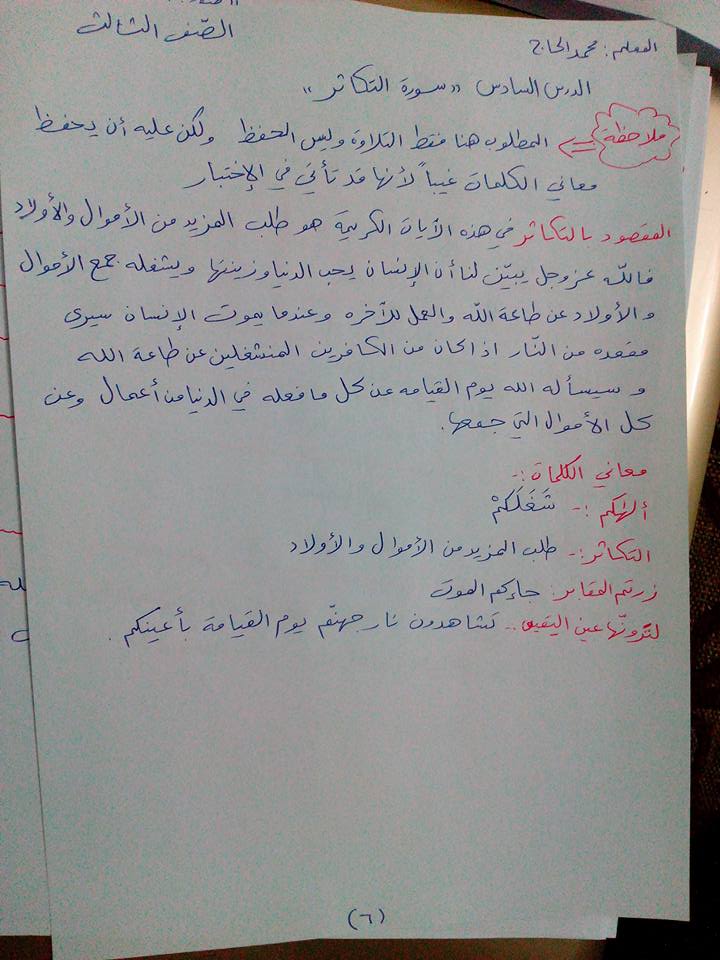 الصّف الثالث
المعلم: محمد الحاج
الدرس السادس "سورة التكاثر"
ملاحظة <= المطلوب هنا فقط التلاوة وليس الحفظ ولكن عليه أن يحفظ
معاني الكلمات غيباً لأنها قد تأتي في الإختبار
المقصود بالتكاثر في هذه الآيات الكريمة هو طلب المزيد من الأموال والأولاد
فاللّه عزوجل يبيّن لنا أن الإنسان يحب الدنيا وزينتها ويشغله جمع الأموال
والأولاد عن طاعة اللّه والعمل للآخره وعندما يموت الإنسان سيرى
مقعده من النّار اذا كان من الكافرين المنشغلين عن طاعة الله
وسيسأله الله يوم القيامه عن كل ما فعله في الدنيا من أعمال وعن
كل الأموال التي جمعها.
معاني الكلمات :-
ألهاكم :- شَغَلَكُمْ
التكاثر :- طلب المزيد من الأموال والأولاد
زرتم المقابر: جاءكم الموت
لتَرونّها عين اليقين :- لتشاهدون نار جهنّم يوم القيامة بأعينكم .
(٦)